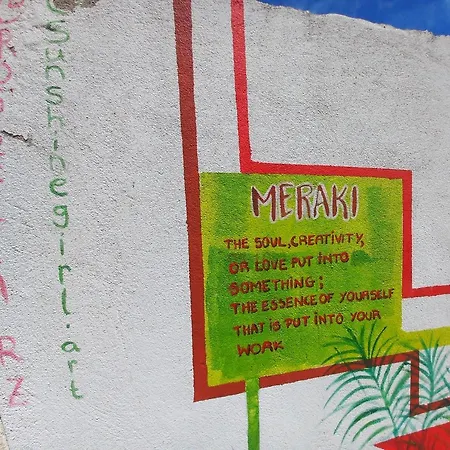 MERAKI
THE SOUL, CREATIVITY,
OR LOVE PUT INTO
SOMETHING;
THE ESSENCE OF YOURSELF
THAT IS PUT INTO YOUR
WORK
sunshinegirl.art